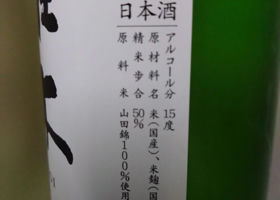 日本酒
アルコール分 15度
原材料名 米(国産)、米麹(国
精米歩合 50%
原料米 山田錦100%使用